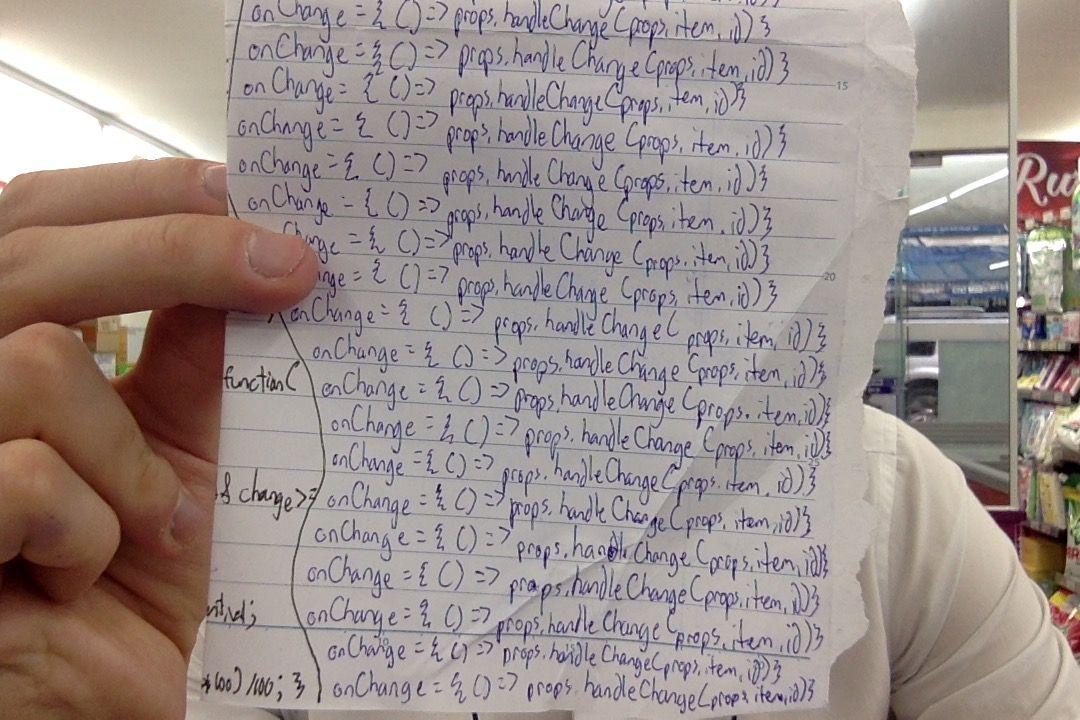 onChange = { () => props.handleChange(props.item, id) }
onChange = { () => props.handle Change (props.item, id) }
onChange = { () => props.handleChange(props.item, id) }
onChange = { () => props.handle Change (props.item, id) }
onChange = { () => props.handle Change (props.item, id) }
onChange = { () => props.handle Change (props.item, id) }
Change = { () => props.handle Change (props.item, id) }
nge = { () => props.handleChange (props.item, id) }
onChange = { () => props.handle Change ( props.item, id) }
onChange = { () => props.handle Change (props.item, id) }
function( onChange = { () => props.handleChange (props.item, id) }
onChange = { () => props.handle Change (props.item, id) }
onChange = { () => props.handleChange (props.item, id) }
& change >= onChange = { () => props.handle Change (props.item, id) }
onChange = { () => props.handle Change (props.item, id) }
onChange = { () => props.handleChange (props.item, id) }
onChange = { () => props.handle Change (props.item, id) }
onChange = { () => props.handleChange (props.item, id) }
*100) /100; } onChange = { () => props.handleChange (props.item, id) }
15
20
Ru